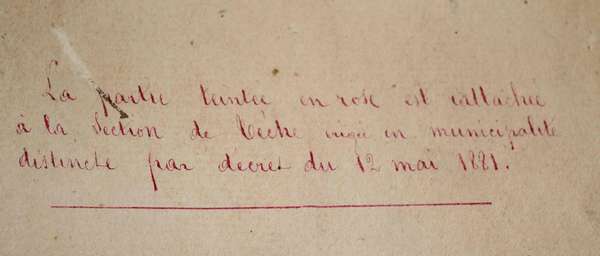 La partie teintée en rose est rattachée
à la Section de Têche érigée en municipalité
distincte par décret du 12 mai 1881.